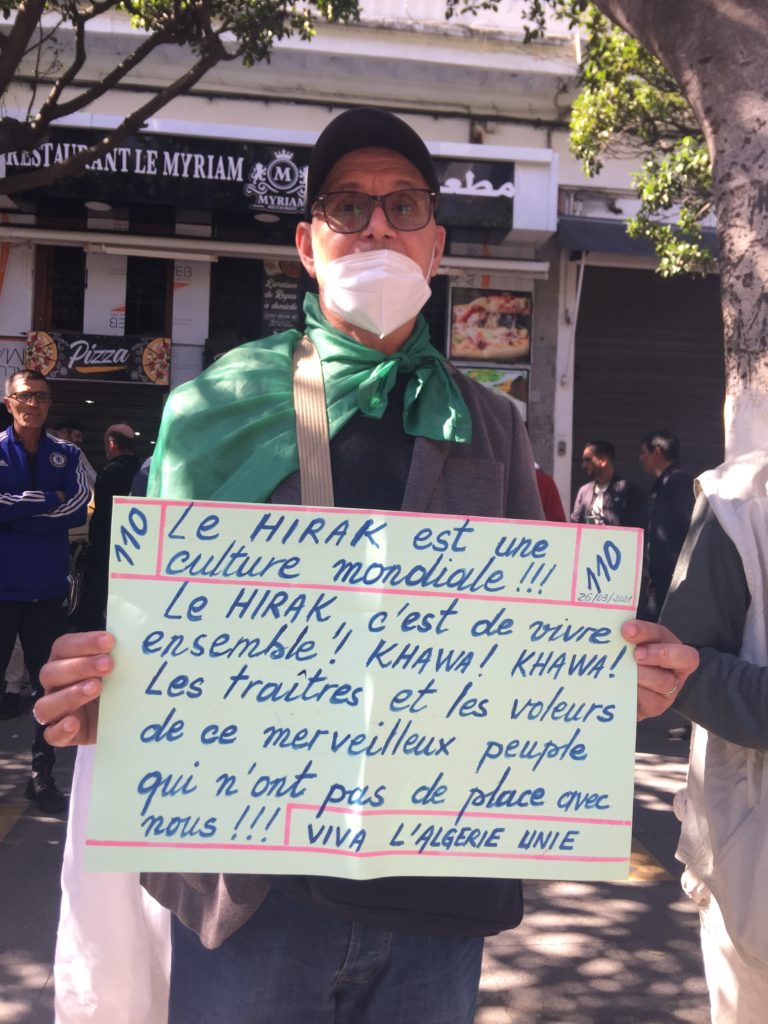 RESTAURANT LE MYRIAM
M
MYRIAM
RESTAURANT
مطعم
Livraison
de Repas
à domicile
Pizza
110
Le HIRAK est une
culture mondiale !!!
110
26/03/2021
Le HIRAK, c'est de vivre
ensemble ! KHAWA! KHAWA!
Les traîtres et les voleurs
de ce merveilleux peuple
qui n'ont pas de place avec
nous !!!
VIVA L'ALGERIE UNIE